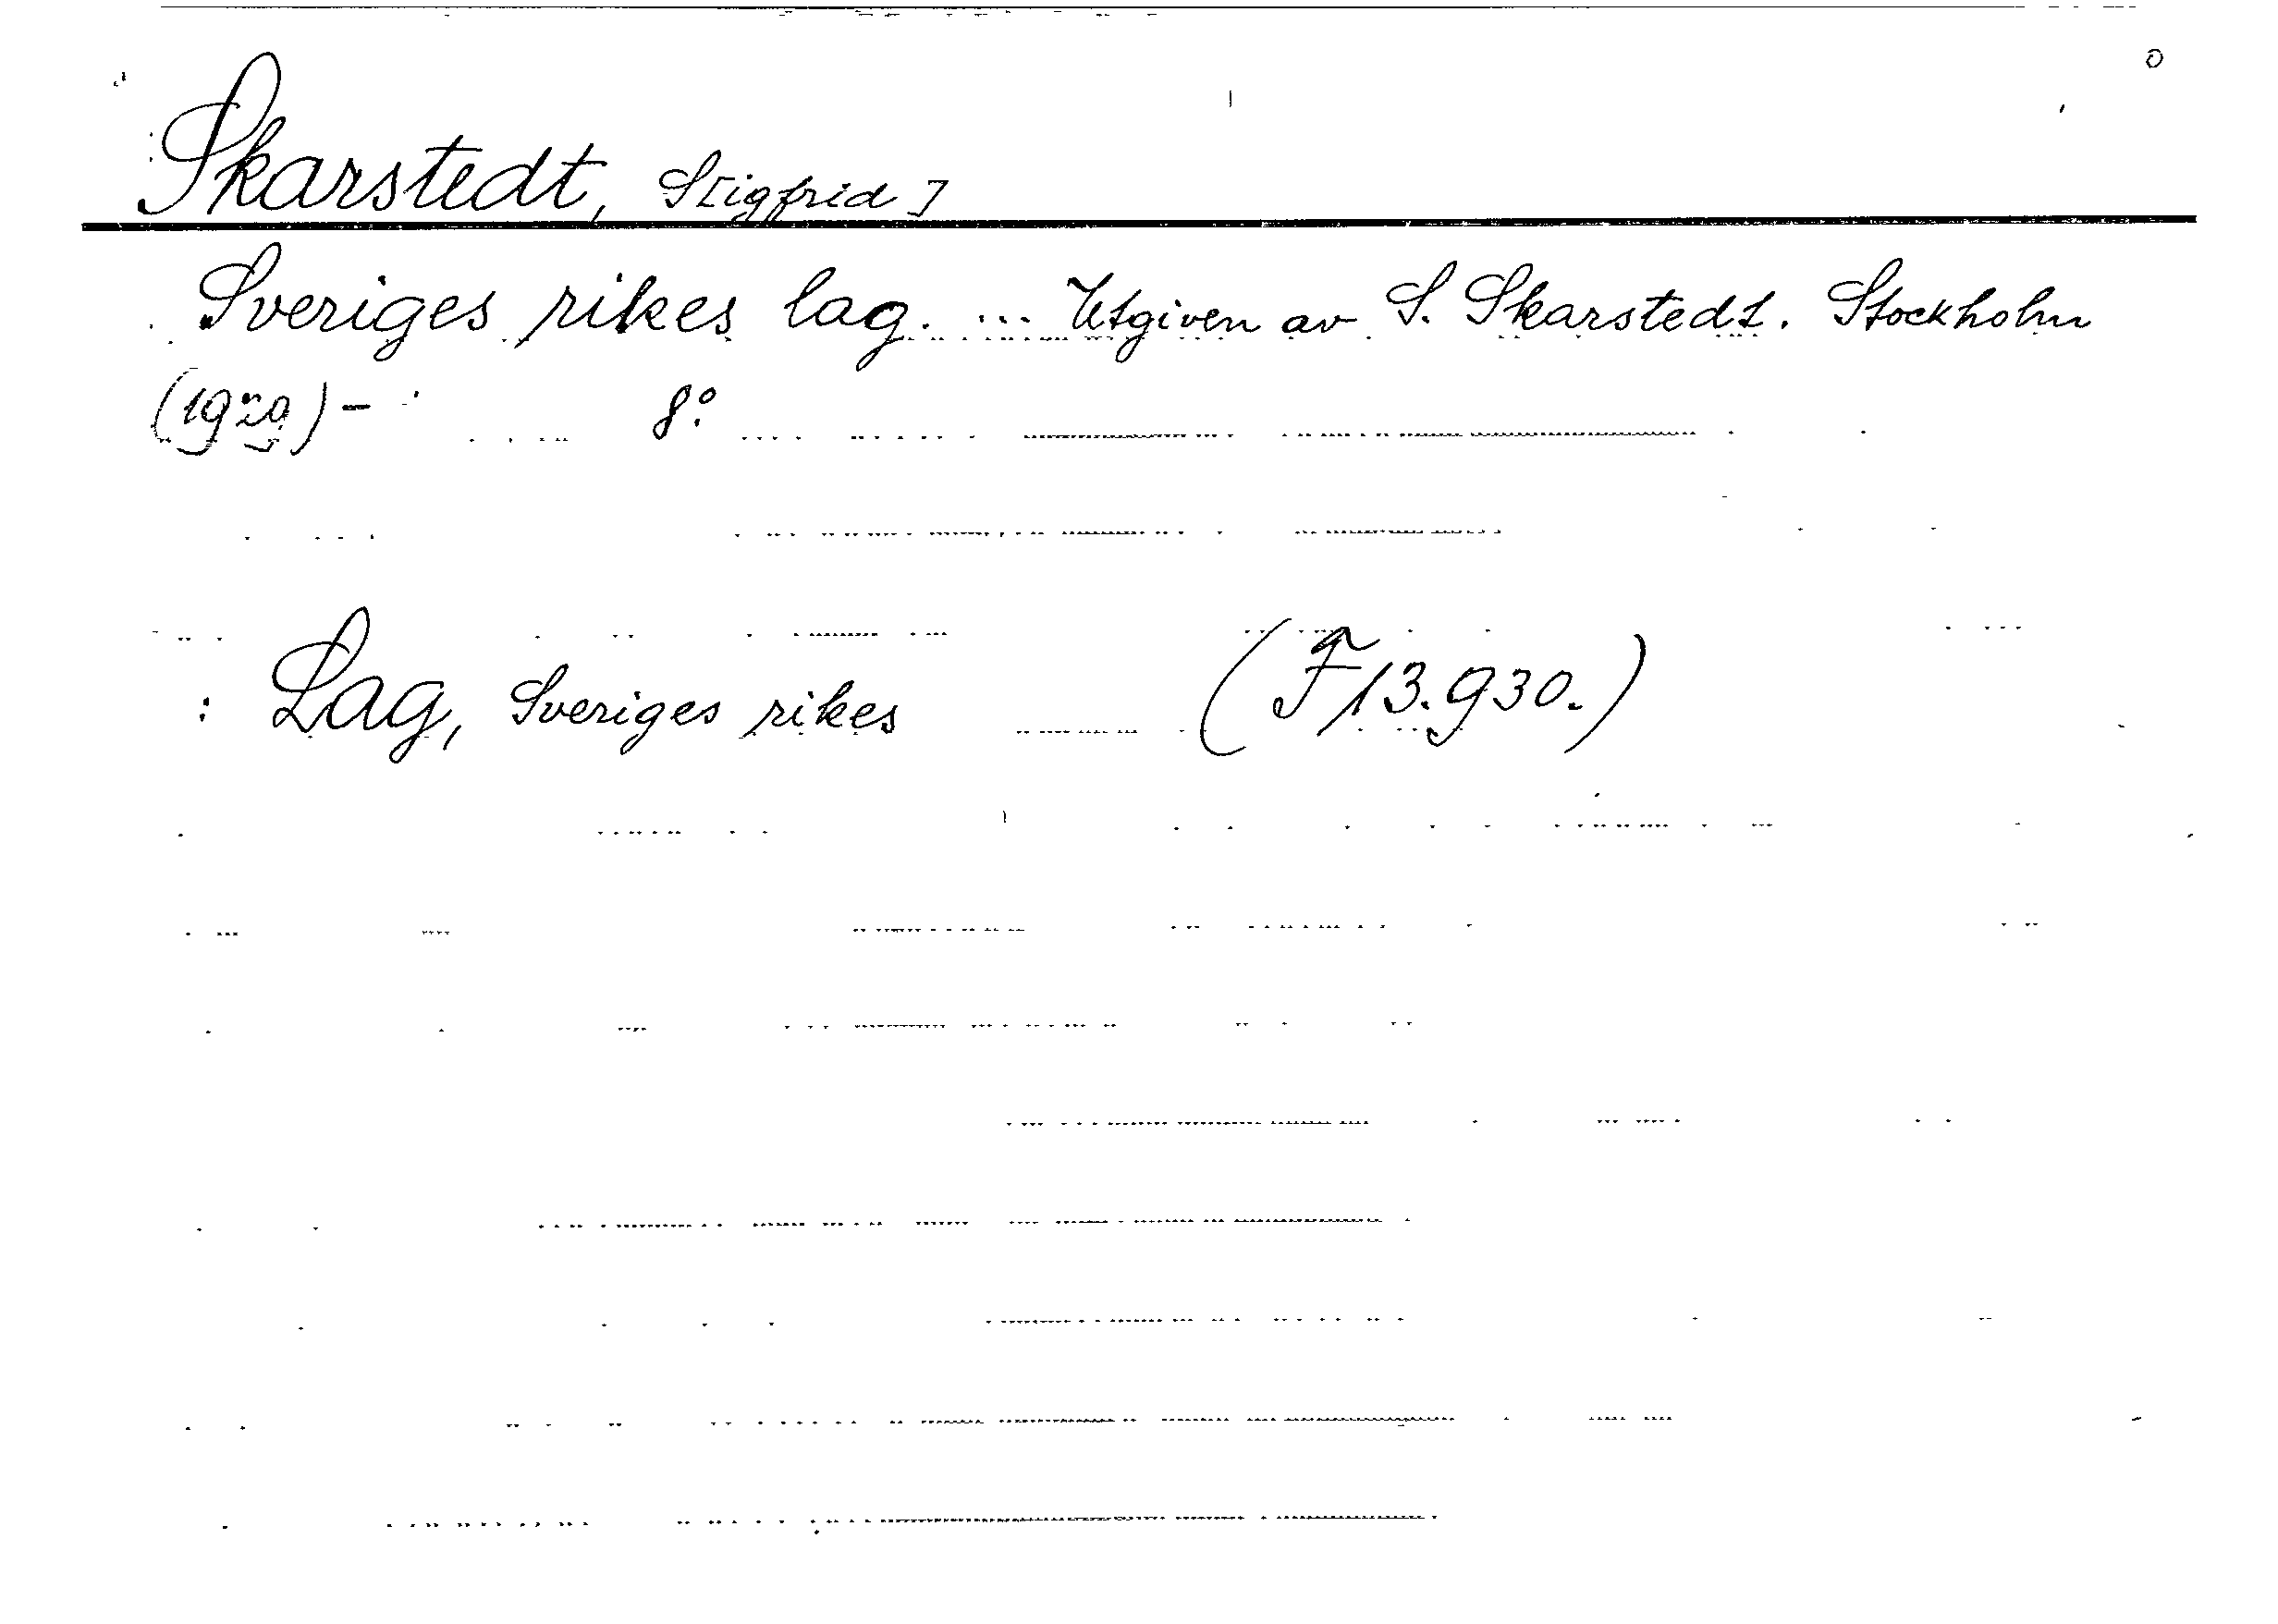 Skarstedt, S[igfrid]
Sveriges rikes lag. ... Utgiven av S. Skarstedt. Stockholm
(1929)- 8:o
: Lag, Sveriges rikes (F13.930.)